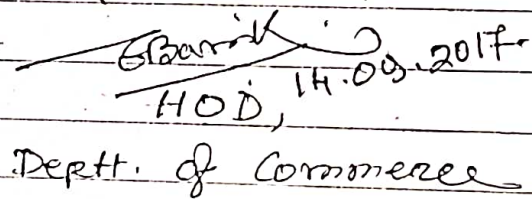 GBarik 14.09.2017
HOD,
Deptt. of Commerce